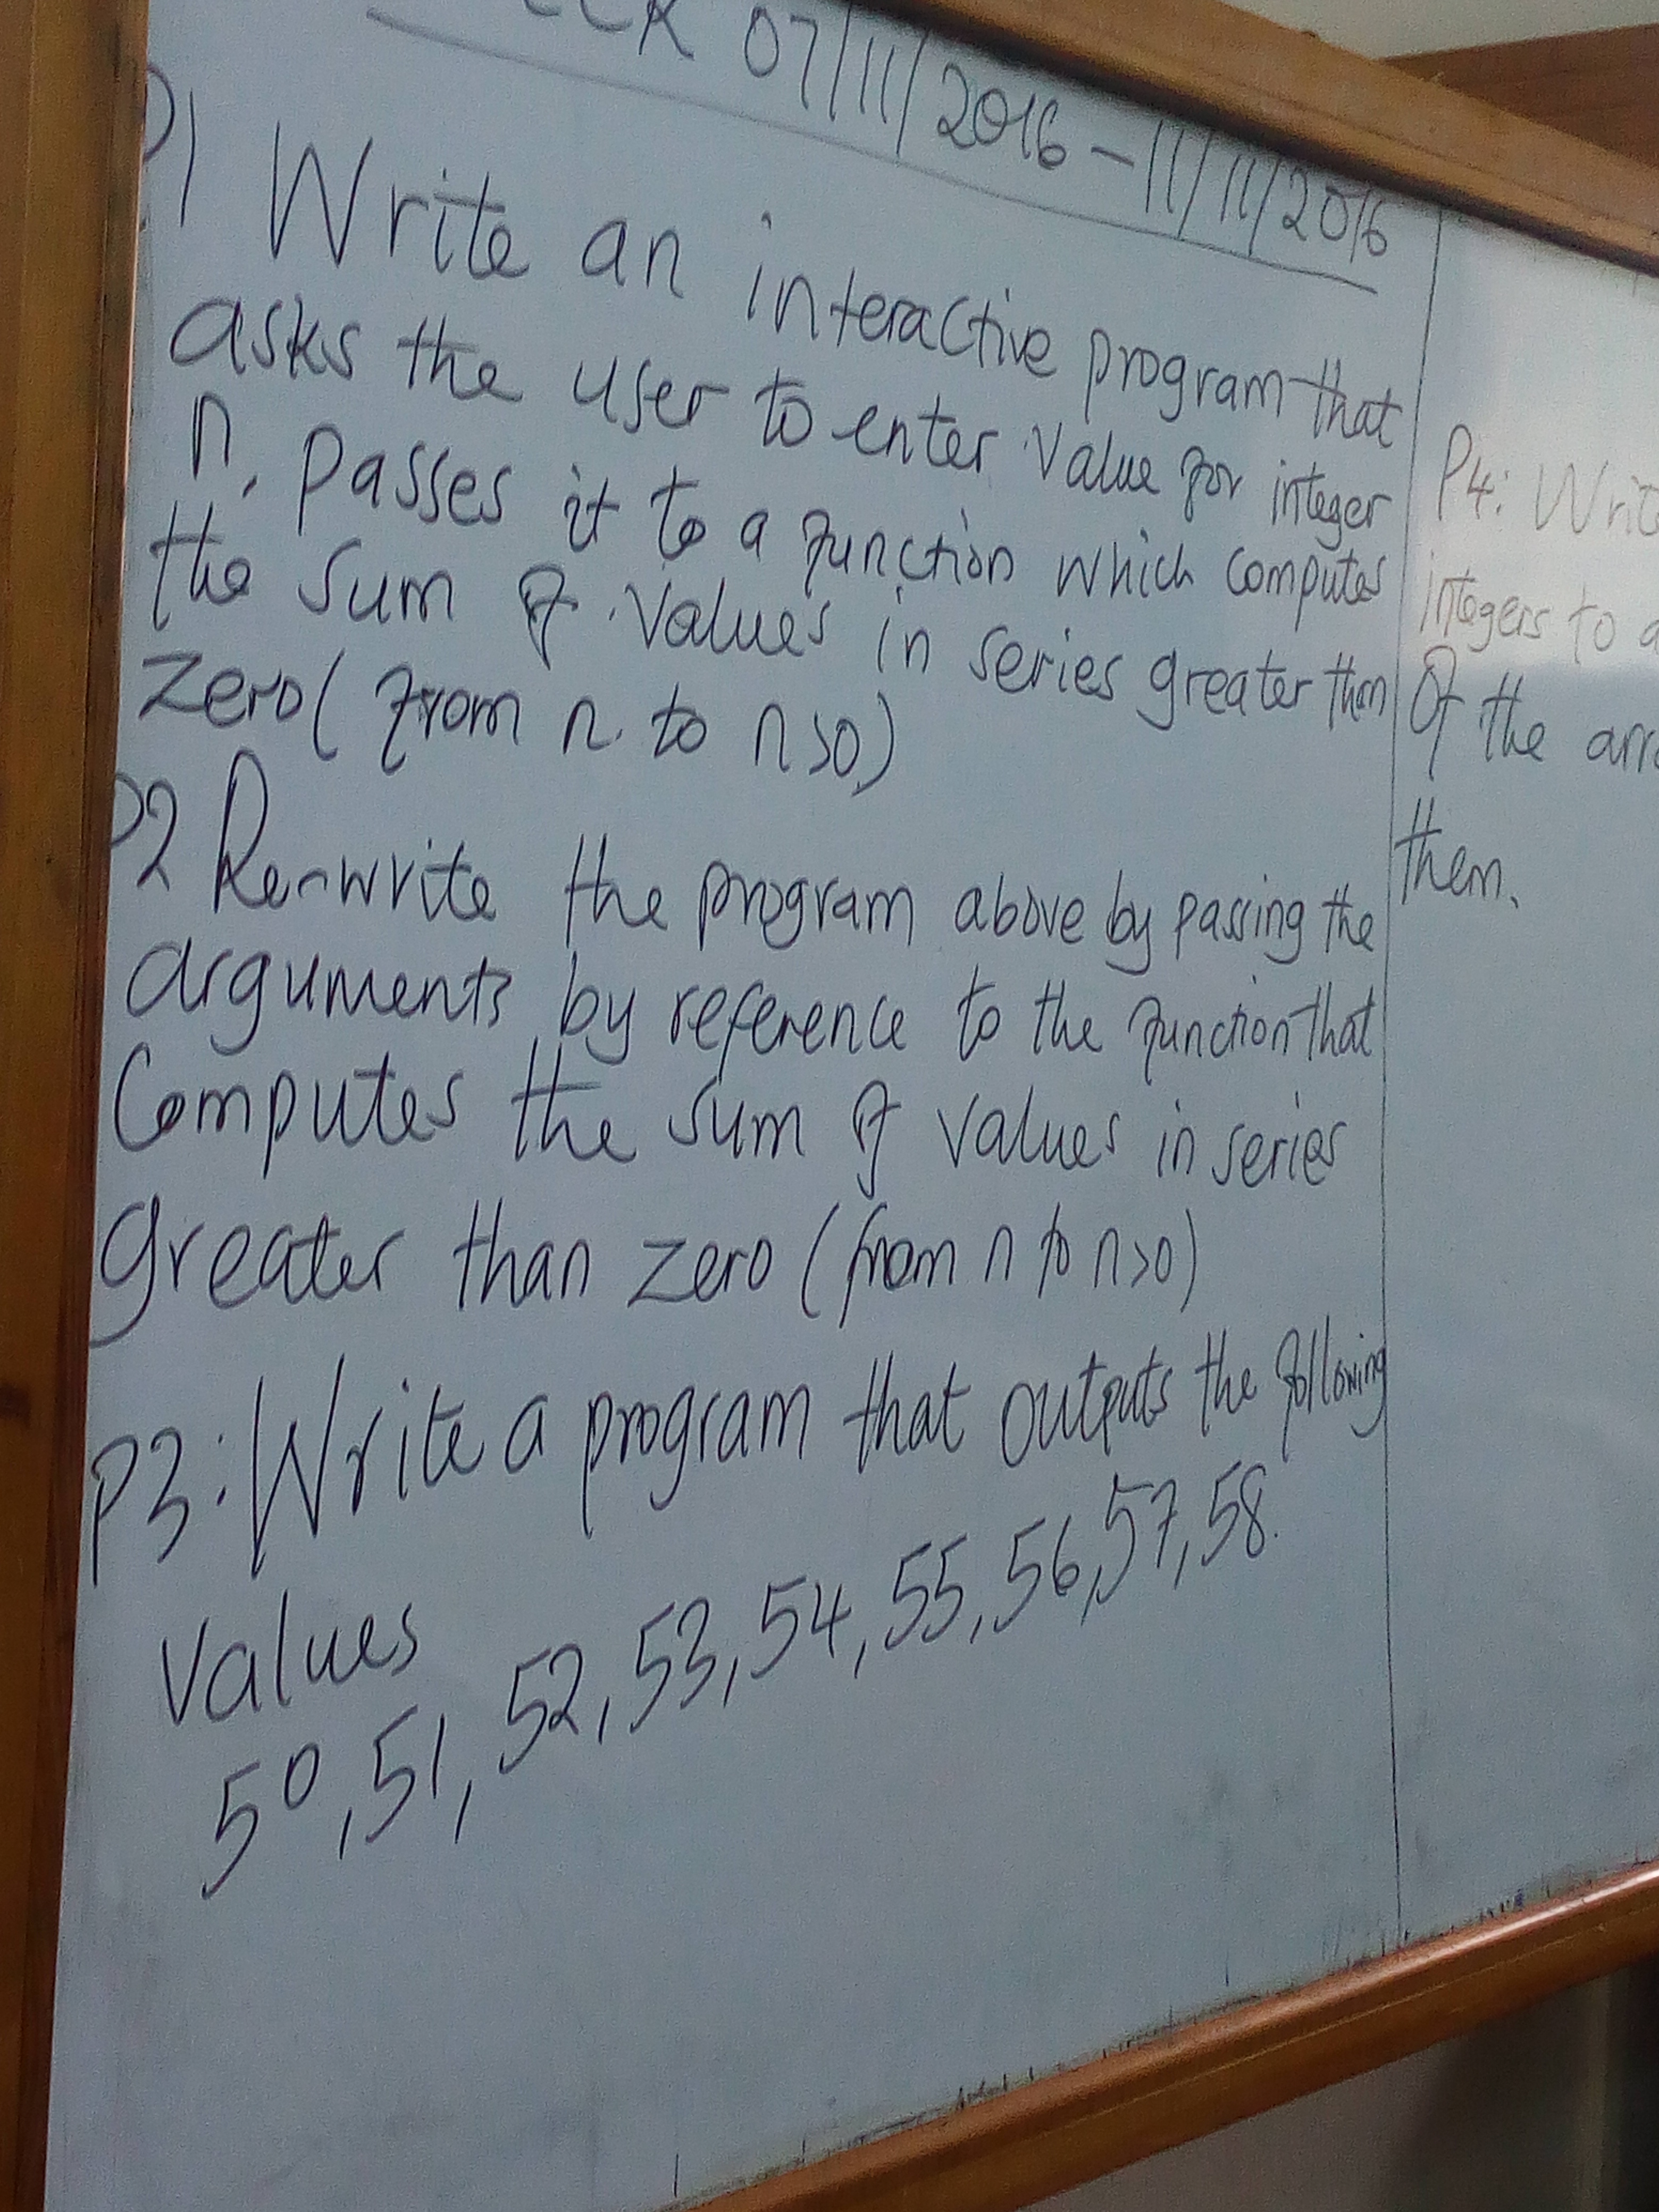 07/11/2016 - 11/11/2016
P1 Write an interactive program that
asks the user to enter value for integer
n, passes it to a function which computes
the sum of values in series greater than
zero (from n to n>0)
P2 Re-write the program above by passing the
arguments by reference to the function that
Computes the sum of values in series
greater than zero (from n to n>0)
P3: Write a program that outputs the following
values
50, 51, 52, 53, 54, 55, 56, 57, 58.
P4:
integers to
of the
them.